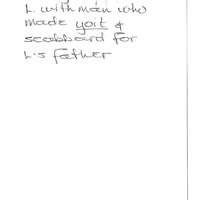 L. with man who
made yoit &
scabbard for
h's father